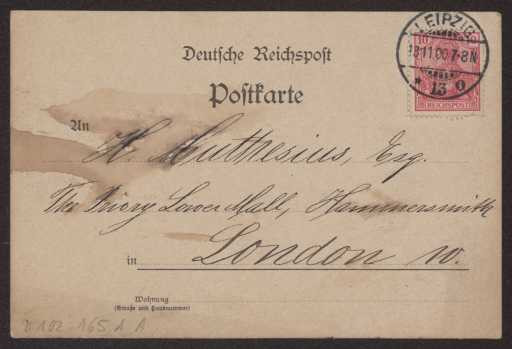 LEIPZIG
13 11 00 7-8N
* 13 o
10 10
REICHSPOST
Deutsche Reichspost
Postkarte
An
H. Muthesius, Esq.
The Priory Lower Mall, Hammersmith
in London W.
Wohnung
(Straße und Hausnummer)
D 102-165 d A